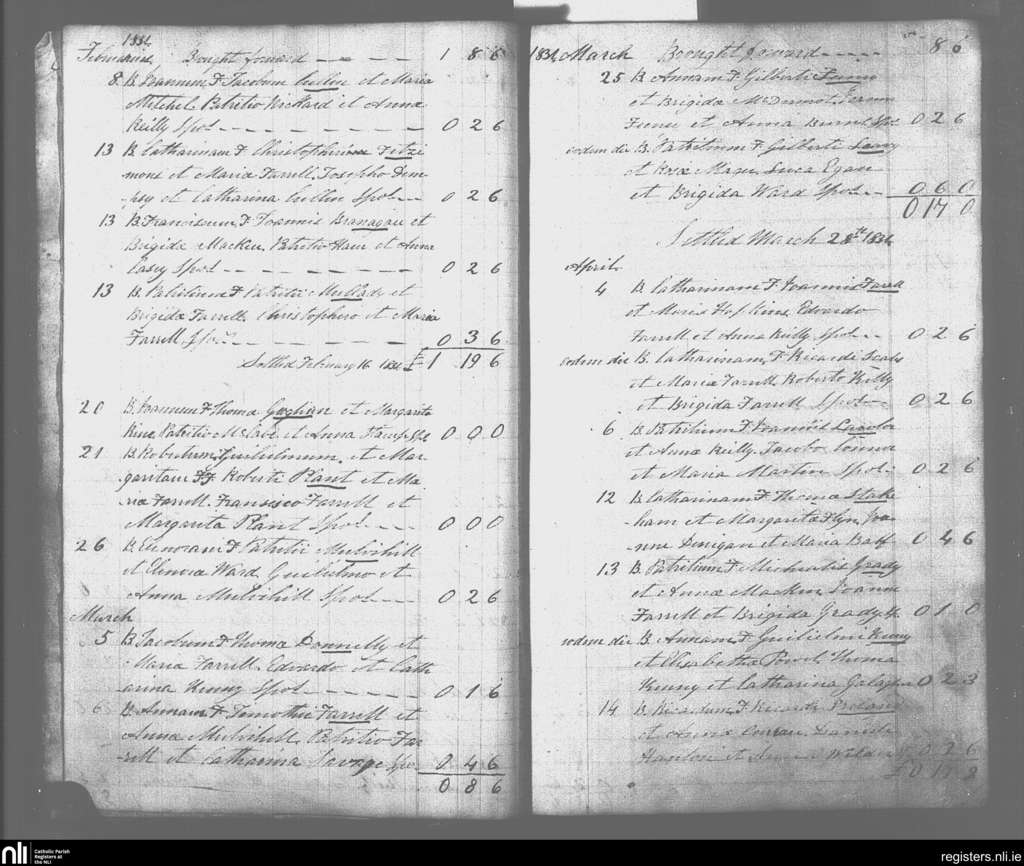 1834
Februarius, Bought forward 1 8 6
8 B. Joannem F. Jacobum et Maria
Mitchel, Patritio Pickard et Anna
Reilly Spos 0 2 6
13 B. Catharinam F. Christopherina Fitzi
mons et Maria Farrell, Josepho Dem-
psy et Catharina Cullin Spos 0 2 6
13 B. Franciscum F. Joannis Branagan et
Brigide Macken, Patritio Ham et Anna
Casey Spos 0 2 6
13 B. Patritium F. Patritii Mullady et
Brigida Farrell, Christophero et Maria
Farrell Spos 0 3 6
Settled February 16 1834 £1 19 6
20 B. Joannem F. Thoma Goghian et Margarita
King, Patritio McCabe et Anna Spos 0 0 0
21 B. Robertum, Guilielmum, et Mar-
garitam FF. Roberti Plant et Ma-
ria Farrell, Francisco Farrell et
Margarita Plant Spos 0 0 0
26 B. Elenoram F. Patritii Mulvihill
et Elenora Ward, Guilielmo et
Anna Mulvihill Spos 0 2 6
March
5 B. Jacobum F. Thoma Donnelly et
Maria Farrell, Edvardo et Cath
arina Kenny Spos 0 1 6
6 B. Annam F. Timothii Farrell et
Anna Mulvihill, Patritio Far-
rell et Catharina Savage Spo 0 4 6
0 8 6
1834 March Brought forward 8 6
25 B. Annam F. Gilberti
et Brigida McDermot,
et Anna Burns Spo 0 2 6
eodem die B. Patritium F. Gilberti
et Rosa Magan, Luca Egan
et Brigida Ward Spos 0 6 0
0 17 0
Settled March 28th 1834
April
4 B. Catharinam F. Joannis Farrell
et Maria Hopkins, Edvardo
Farrell et Anna Reilly Spos 0 2 6
eodem die B. Catharinam F. Ricardi Scaly
et Maria Farrell, Roberto Kelly
et Brigida Farrell Spos 0 2 6
6 B. Patritium F. Joannis Lincoln
et Anna Reilly, Jacobo
et Maria Martin Spos 0 2 6
12 B. Catharinam F. Thoma Stake
ham et Margarita Flyn, Joa-
nne Dinigan et Maria 0 4 6
13 B. Patritium F. Michaelis Grady
et Anna Macken, Joanne
Farrell et Brigida Grady 0 1 0
eodem die B. Annam F. Guilielmi Kenny
et Elisabetha Powel, Thoma
Kenny et Catharina 0 2 3
14 B. Ricardum F. Ricardi
et Anna Daniele
Hanlon et 0 3 6
nli
Catholic Parish
Registers at
the NLI
registers.nli.ie